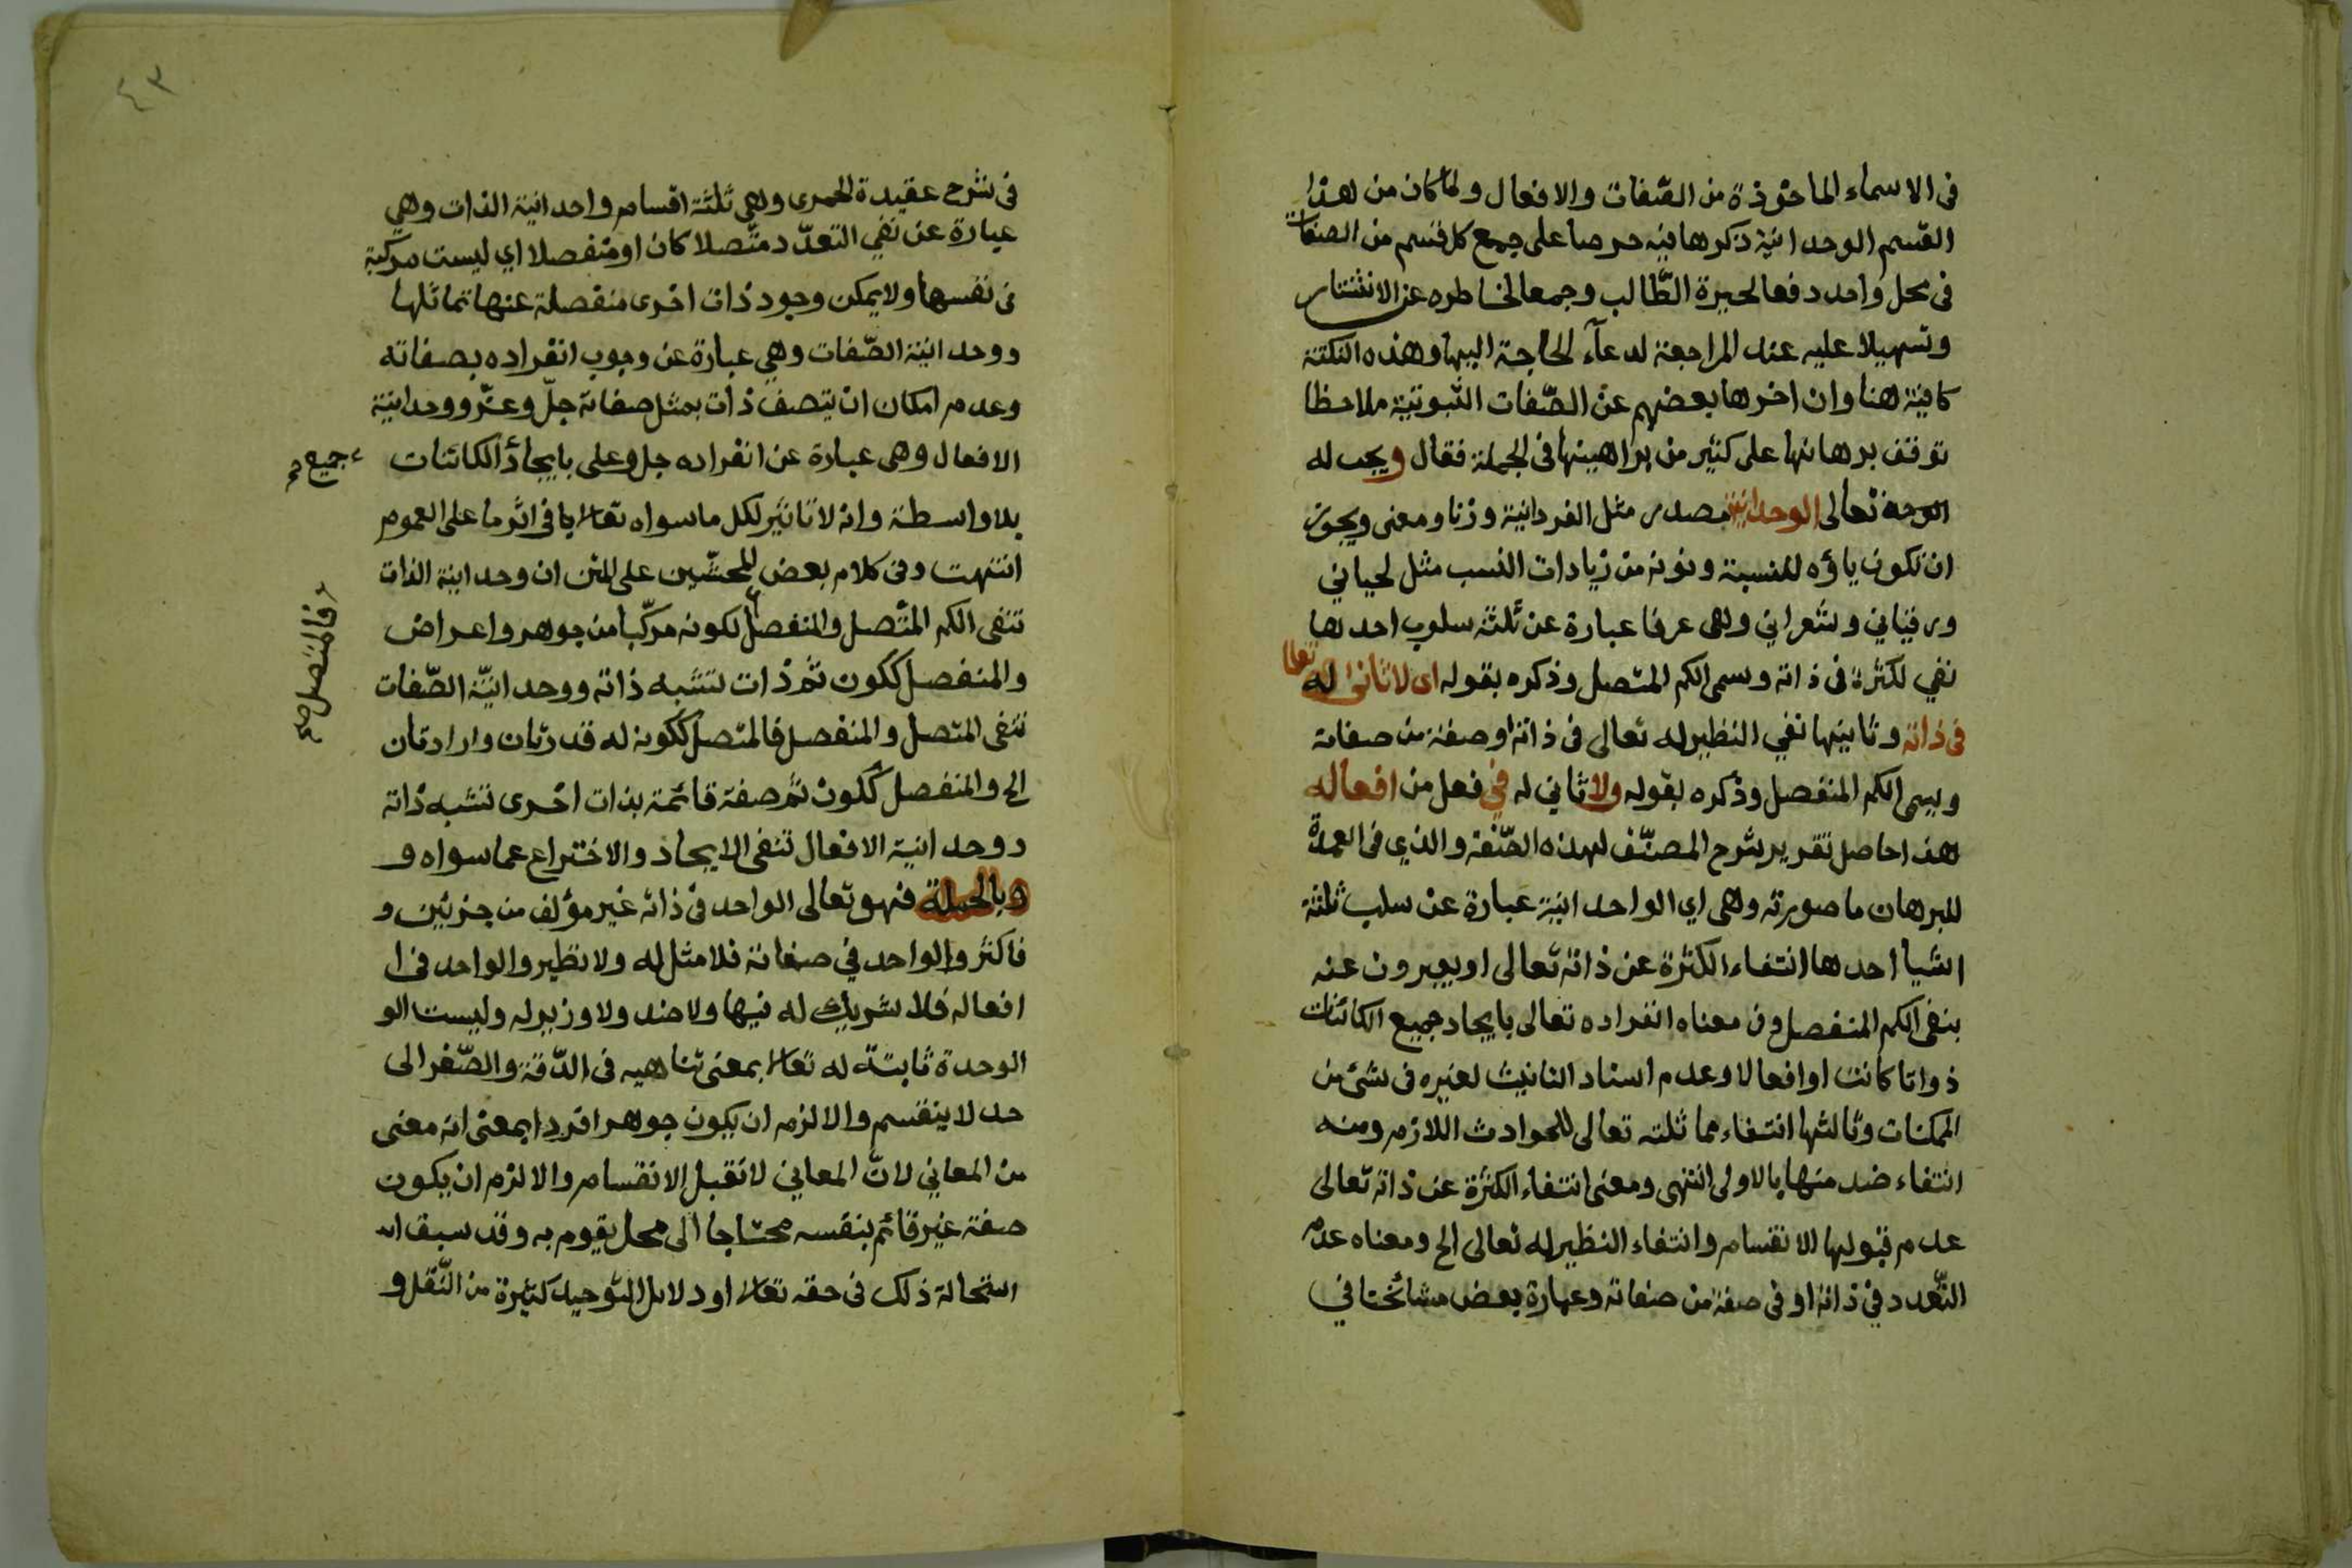 فى الاسماء الماخوذة من الصّفات والافعال ولما كان من هذا
القسم الوحدانية ذكرها فيه حرصا على جمع كل قسم من الصفات
فى محل واحد دفعا لحيرة الطّالب وجمعا لخاطره عن الانتشار
وتسهيلا عليه عند المراجعة لدعآء الحاجة اليها وهذه النكتة
كافية هنا وان اخرها بعضهم عن الصّفات الثبوتية ملاحظا
توقف برهانها على كثير من براهينها فى الجملة فقال ويجب له
تعالى الوحدانية مصدر مثل الفردانية وزنا ومعنى ويجوز
ان تكون ياؤه للنسبة ونونه من زيادات النسب مثل لحياني
ورقباني وشعراني وهى عرفا عبارة عن ثلثة سلوب احدها
نفي لكثرة فى ذاته وسمى الكم المتصل وذكره بقوله اى لا ثانى له تعالى
فى ذاته وثانيها نفي النظير له تعالى فى ذاته او صفة من صفاته
ويسمى الكم المنفصل وذكره بقوله ولا ثاني له في فعل من افعاله
هذا حاصل تقرير شرح المصنّف لهذه الصّفة والذي فى العمدة
للبرهان ما صورته وهى اي الواحدانية عبارة عن سلب ثلثة
اشيا احدها انتفاء الكثرة عن ذاته تعالى او يعبرون عنه
بنفى الكم المنفصل وفى معناه انفراده تعالى بايجاد جميع الكائنات
ذواتا كانت او افعالا وعدم اسناد التانيث لغيره فى شئ من
الممكنات وثالثها انتفاء مماثلته تعالى للحوادث اللازم ومنه
انتفاء ضد منها بالاولى انتهى ومعنى انتفاء الكثرة عن ذاته تعالى
عدم قبولها الانقسام وانتفاء النظير له تعالى الخ ومعناه عدم
التّعدد في ذاته او فى صفة من صفاته وعبارة بعض مشائخنا في
٤٣
فى شرح عقيدة الحمرى وهي ثلثة اقسام واحدانية الذات وهي
عبارة عن نفي التعدّد متّصلا كان او منفصلا اي ليست مركبة
فى نفسها ولا يمكن وجود ذات اخرى منفصلة عنها تماثلها
ووحدانية الصّفات وهي عبارة عن وجوب انفراده بصفاته
وعدم امكان ان يتصف ذات بمثل صفاته جلّ وعزّ ووحدانية
الافعال وهى عبارة عن انفراده جل وعلى بايجاد الكائنات
جميع
بلا واسطة وانه لا تاثير لكل ما سواه تعالى يا فى اثر ما على العموم
انتهت وفى كلام بعض المحشّين على المتن ان وحدانية الذات
تنفى الكم المتّصل والمنفصل لكونه مركّبا من جوهر واعراض
فالمتصل صح
والمنفصل ككون ثم ذات تشبه ذاته ووحدانيّة الصّفات
تنفى المتصل والمنفصل فالمتصل ككونه له قدرتان وارادتان
الخ والمنفصل ككون ثم صفة قائمة بذات اخرى تشبه ذاته
ووحدانية الافعال تنفى الايجاد والاختراع عما سواه و
وبالجملة فهو تعالى الواحد فى ذاته غير مؤلف من جزئين و
فاكثر والواحد في صفاته فلا مثل له ولا نظير والواحد فى ا
افعاله فلا شريك له فيها ولا ضد ولا وزير له وليست الو
الوحدة ثابتة له تعالى بمعنى تناهيه فى الدّقة والصّغر الى
حد لا ينقسم والا لزم ان يكون جوهرا فردا بمعنى انه معنى
من المعاني لانّ المعاني لا تقبل الانقسام والا لزم ان يكون
صفة غير قائم بنفسه محتاجا الى محل يقوم به وقد سبق اس
استحالة ذلك فى حقه تعالى او دلائل التوحيد كثيرة من النّقل و